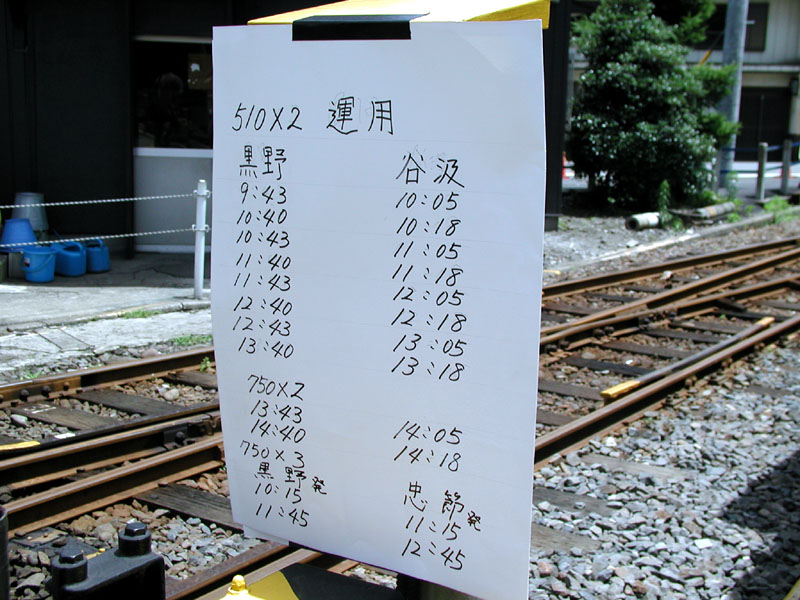 510×2 運用
黒野 谷汲
9:43 10:05
10:40 10:18
10:43 11:05
11:40 11:18
11:43 12:05
12:40 12:18
12:43 13:05
13:40 13:18
750×2
13:43 14:05
14:40 14:18
750×3
黒野発 忠節発
10:15 11:15
11:45 12:45